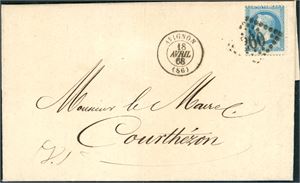 AVIGNON
18
AVRIL
68
(86)
Monsieur le Maire
Courthézon